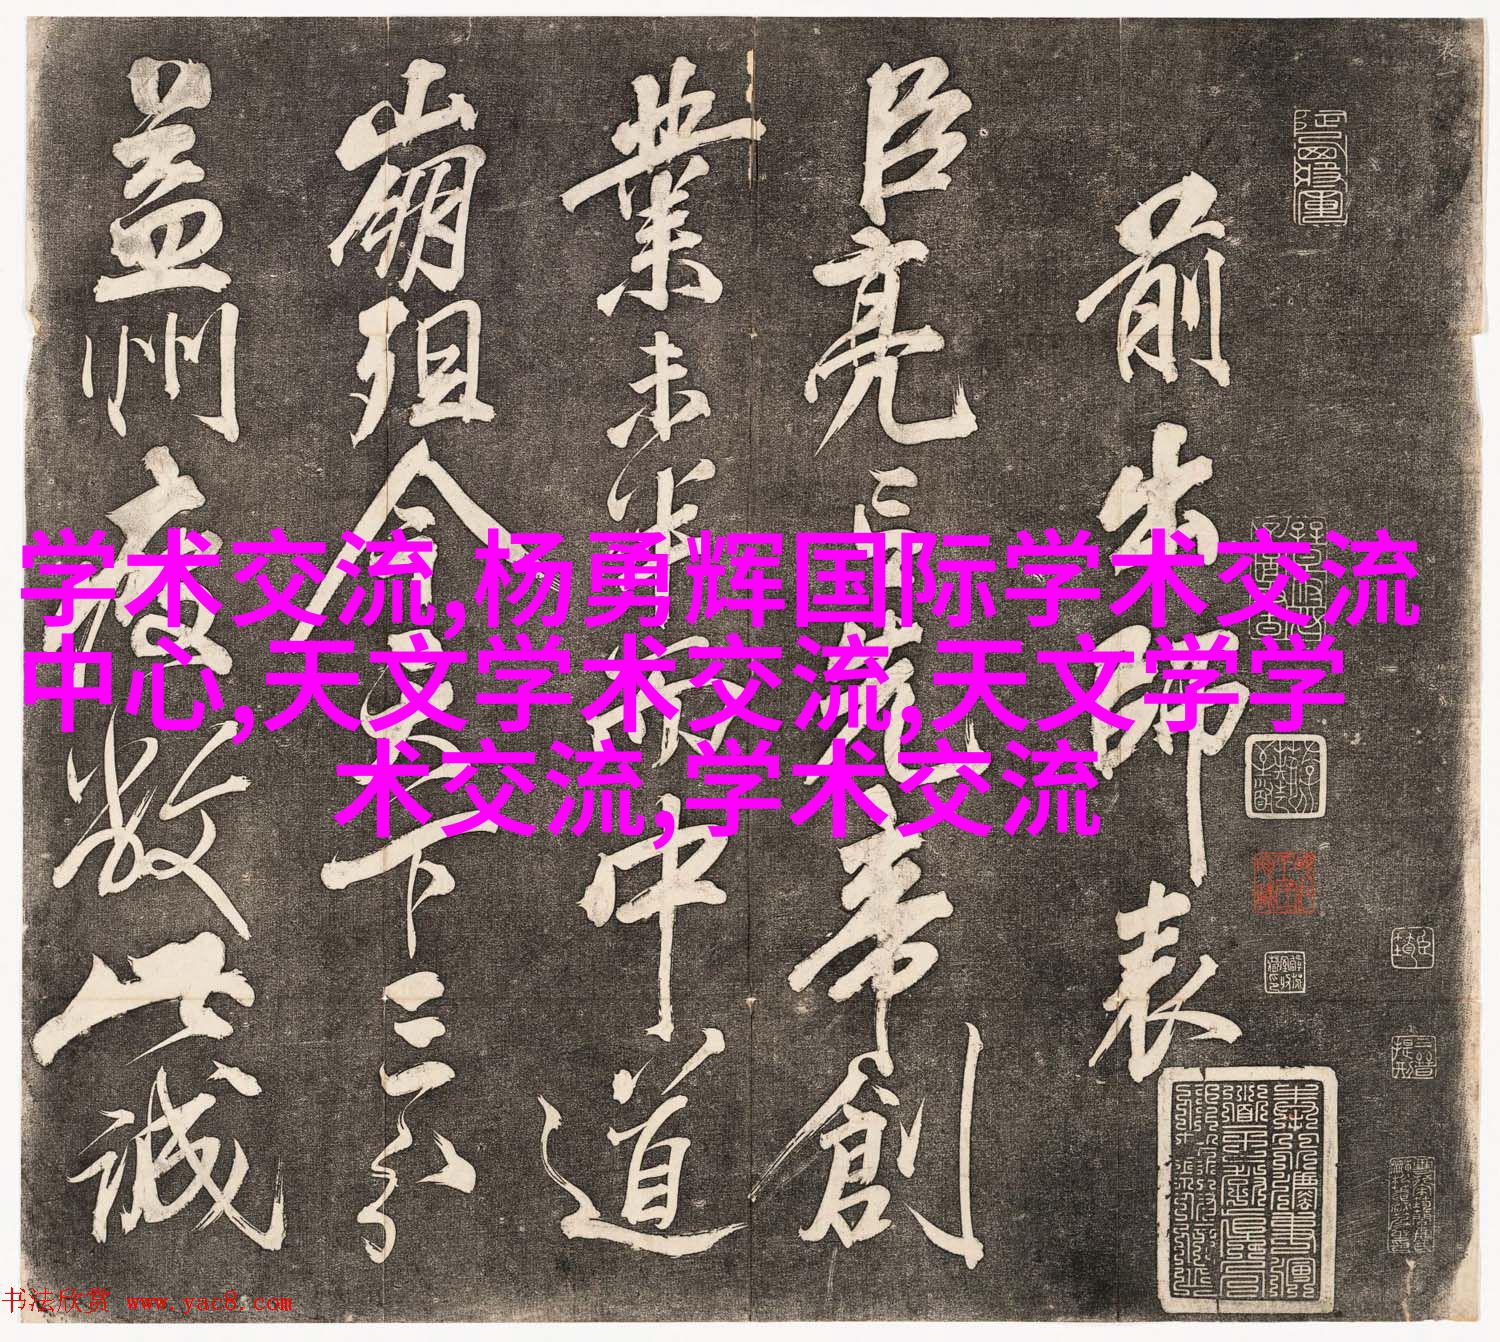 前出師表
臣亮言先帝創
業未半而中道
崩殂今天下三分
益州疲敝此誠
学术交流,杨勇辉国际学术交流
中心,天文学术交流,天文学学
术交流,学术交流
三晉提刑
书法欣赏 www.yac8.com